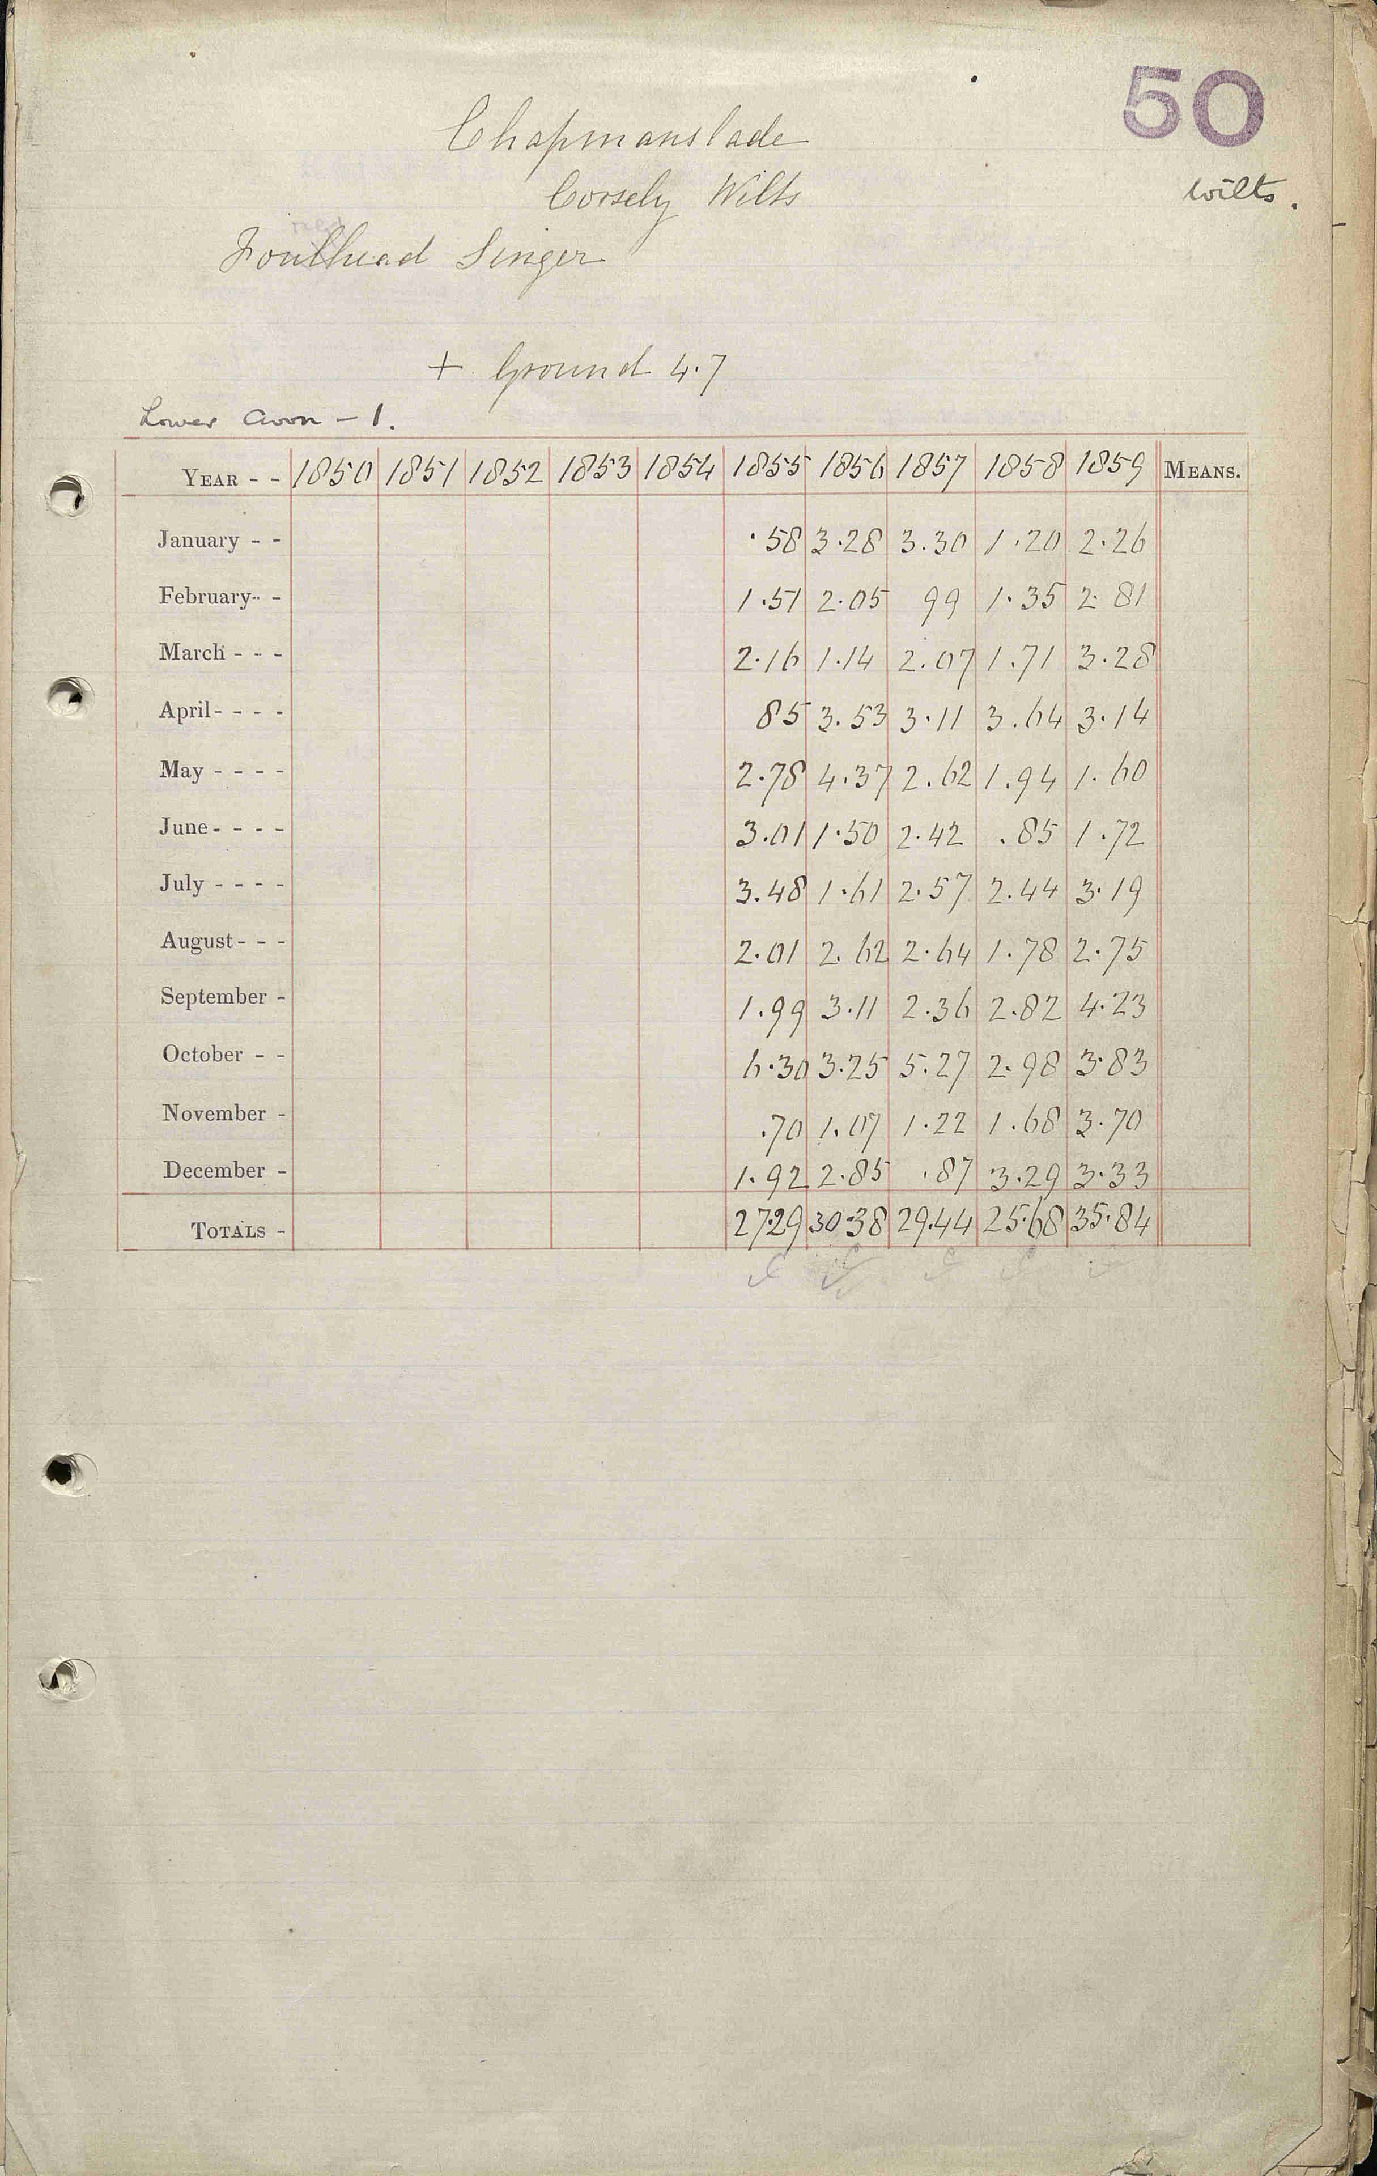 50
Chapmanslade
Corsely Wilts
Wilts.
Singer
+ Ground 4.7
Lower Avon - 1.
YEAR - - 1850 1851 1852 1853 1854 1855 1856 1857 1858 1859 MEANS.
January - - .58 3.28 3.30 1.20 2.26
February - - 1.51 2.05 99 1.35 2.81
March - - - 2.16 1.14 2.07 1.71 3.28
April - - - - 85 3.53 3.11 3.64 3.14
May - - - - 2.78 4.37 2.62 1.94 1.60
June - - - - 3.01 1.50 2.42 .85 1.72
July - - - - 3.48 1.61 2.57 2.44 3.19
August - - - 2.01 2.62 2.64 1.78 2.75
September - 1.99 3.11 2.36 2.82 4.23
October - - 6.30 3.25 5.27 2.98 3.83
November - .70 1.07 1.22 1.68 3.70
December - 1.92 2.85 .87 3.29 3.33
TOTALS - 27.29 30.38 29.44 25.68 35.84